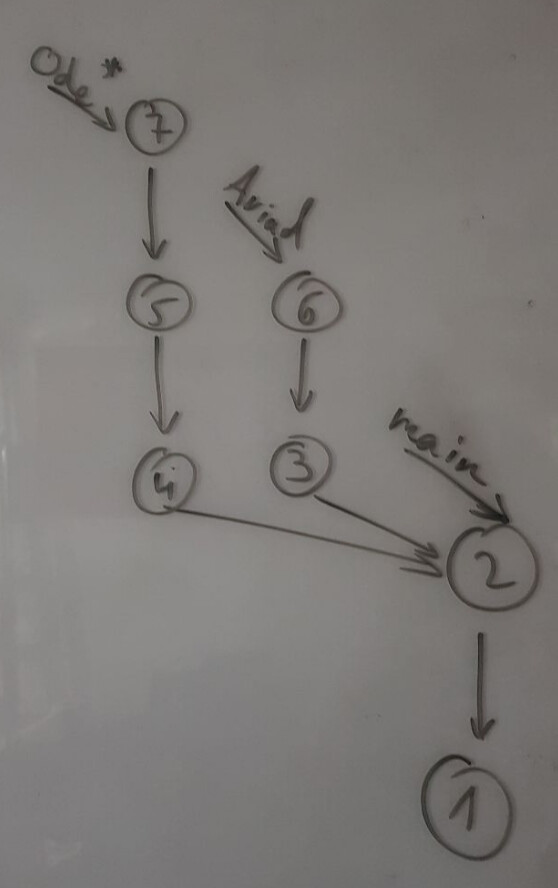 Ode*
7
Aviad
5
6
main
4
3
2
1